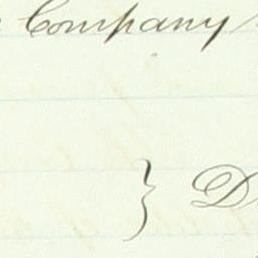 Company
}